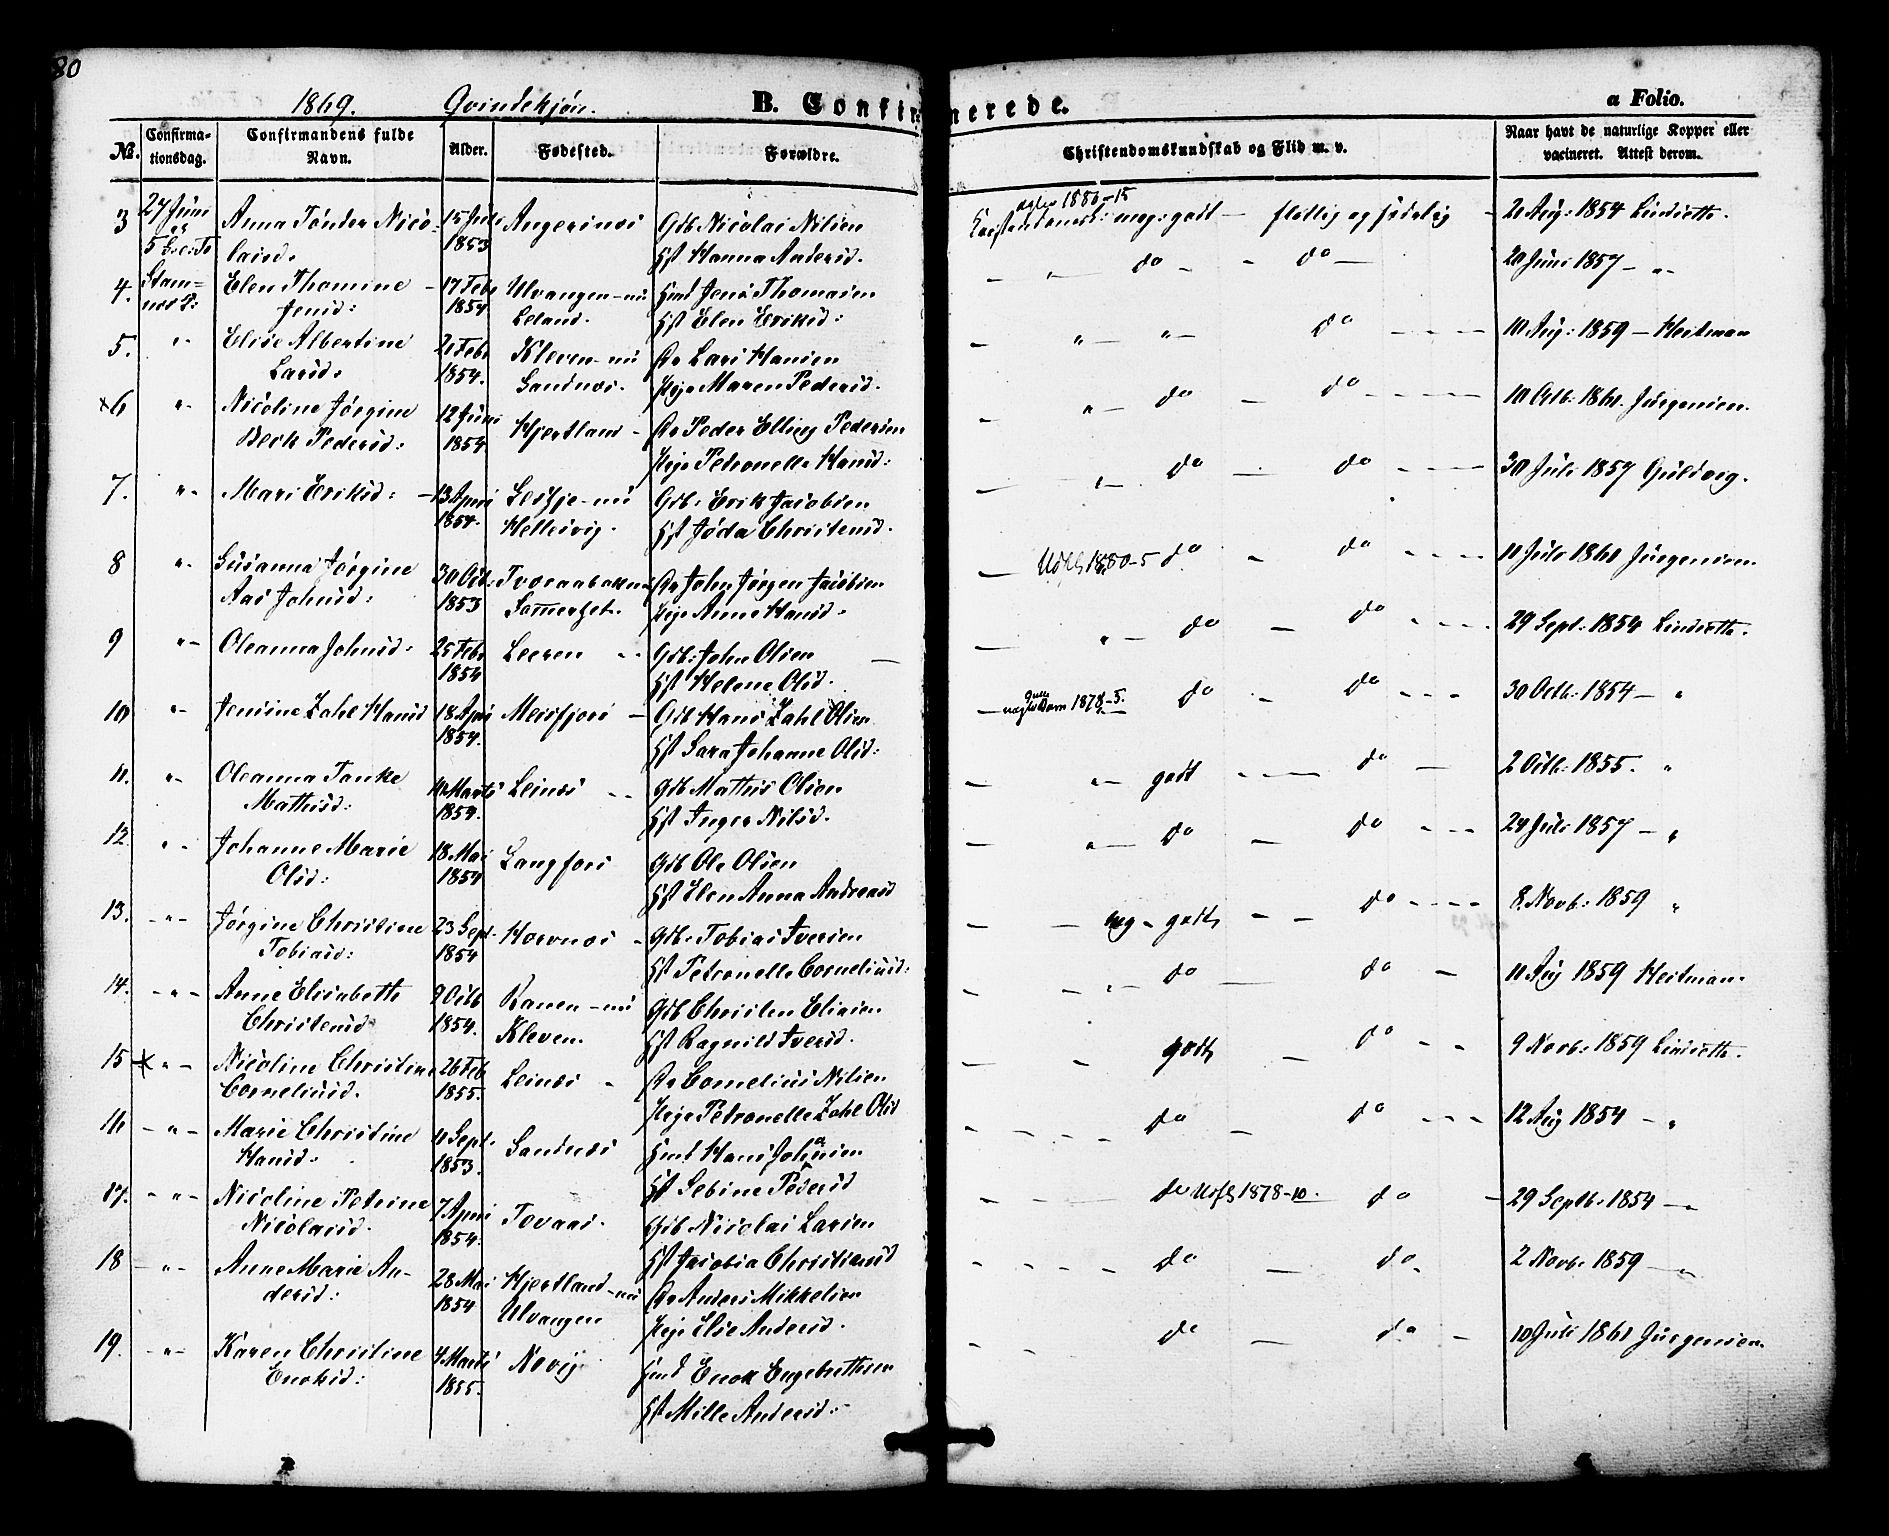 80
1869. Qvindekjøn. B. Confirmerede. a Folio.
No. Confirmationsdag. Confirmandens fulde Navn. Alder. Fødested. Forældre. Christendomskundskab og Flid m. v. Naar havt de naturlige Kopper eller vacineret. Attest derom.
3 27 Juni Anna Tønder Nico- 15 Juli Gdb Nicolai Nilsen meg: godt — flittig og sædelig - 2 Aug: 1854
5 S. e: Tr laisd. 1853 Hst Hanna Andersd.
4. Stam- Elen Thomine 17 Feb Ulvangen - nu Jens Thomasen do - do 20 Juni 1857 - "
næs Jensd: 1854 Leland. Hst Elen Eriksd:
5. " Elise Albertine 2 Feb Kleven - nu Lars Hansen " - " - do 10 Aug: 1859 - Heitman
Larsd. 1854. Sandnæs. Maren Pedersd.
×6 " Nicoline Jørgine 12 Juni Hjertland - Peder Elling Pedersen " - do - do 10 Octb: 1861. Jürgensen.
Beck Pedersd: 1854 Petronelle Hansd:
7. " Mari Eriksd: - 13 April nu Gdb: Erik Jacobsen do - do 30 Juli 1857 Guldvog.
1854. Hellesvig. Hst Jøda Christensd.
8 " Susanna Jørgine 30 Oct: John Jørgen Jacobsen 1880-5 do - do 11 Juli 1861 Jürgensen
Aas Johnsd: 1853 Anne Hansd.
9 " Oleanna Johnsd: 25 Feb Leeren " Gdb: John Olsen " - do - do 29 Sept: 1854
1854 Hst Helene Olsd.
10 " Jensine Zahl Hansd 18 April Meisfjord - Gdb Hans Zahl Olsen 1878-5. do - do 30 Octb: 1854 - "
1854. Hst Sara Johanne Olsd:
11. " Oleanna Tanke Marts Leinæs " Gdb Mathis Olsen " - godt - do - 2 Octb: 1855. "
Mathisd: 1854. Hst Inger Nilsd.
12. " Johanne Marie 18 Mai Langfors Gdb Ole Olsen " - do - do 24 Juli 1857 - "
Olsd: 1854 Hst Elen Anna Andreasd
13. " Jørgine Christine 23 Sept. Gdb: Tobias Iversen meg - godt - do 8. Novb: 1859 "
Tobiasd: 1854 Hst Petronelle Corneliusd:
14. " Anne Elisabeth 9 Octb Ranen - nu Gdb Christen Eliasen do - do - 11 Aug 1859 Heitman.
Christensd 1854. Kleven. Hst Ragnild Iversd.
15 × " Nicoline Christine 26 Feb Leinæs " Cornelius Nilsen godt - do 9 Novb: 1859
Corneliusd. 1855. Petronelle Zahl Olsd
16 - " - Marie Christine 11 Sept. Sandnæs Hans Johansen do - do 12 Aug 1854 - "
Hansd. 1853. Hst Sebine Pedersd
17. " " Nicoline Petrine 7 April Tovaas. Gdb Nicolai Larsen do 1878-10. do - 29 Septb: 1854 - "
Nicolaisd. 1854. Hst Jacobia Christiansd
18 - " - Anne Marie An- 28 Mai Hjertland - nu Anders Mikkelsen do - do. 2 Novb. 1859 - "
dersd: 1854 Ulvangen Else Andersd.
19. - " - Karen Christine 4 Marts Nævij Enok Engebrethsen do - do - 10 Juli 1861 Jürgensen.
Enoksd: 1855. Hst Mille Andersd: